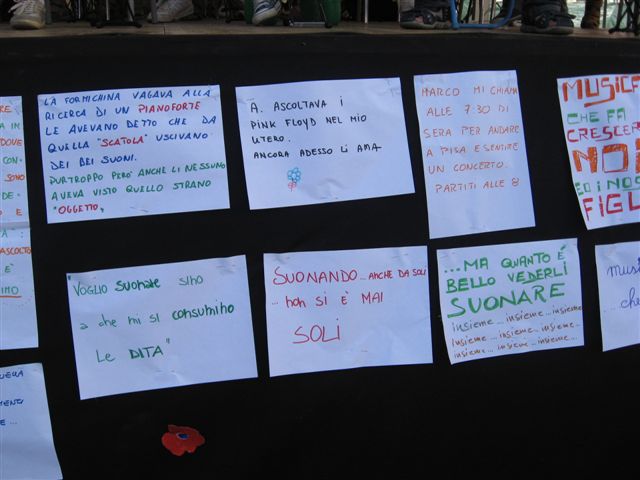 LA FORMICHINA VAGAVA ALLA
RICERCA DI UN PIANOFORTE
LE AVEVANO DETTO CHE DA
QUELLA "SCATOLA" USCIVANO
DEI BEI SUONI.
PURTROPPO PERO' ANCHE LI NESSUNO
AVEVA VISTO QUELLO STRANO
"OGGETTO"
A. ASCOLTAVA I
PINK FLOYD NEL MIO
UTERO.
ANCORA ADESSO LI AMA
MARCO MI CHIAMA
ALLE 7.30 DI
SERA PER ANDARE
A PISA E SENTIRE
UN CONCERTO.
PARTITI ALLE 8!
MUSICA
CHE FA
CRESCERE
NOI
ED I NOS
FIGL
"VOGLIO SUONARE SINO
a che mi si consumino
Le DITA"
SUONANDO... ANCHE DA SOLI
... non SI È MAI
SOLI
...MA QUANTO É
BELLO VEDERLI
SUONARE
insieme... insieme... insieme
insieme... insieme... insieme...
insieme... insieme... insieme..
musi
che
RE
IA IN
DOVE
CON-
SONO
DE-
E
TA:
ASCOLTO
E'
IMO
UERA
MENTI
E...